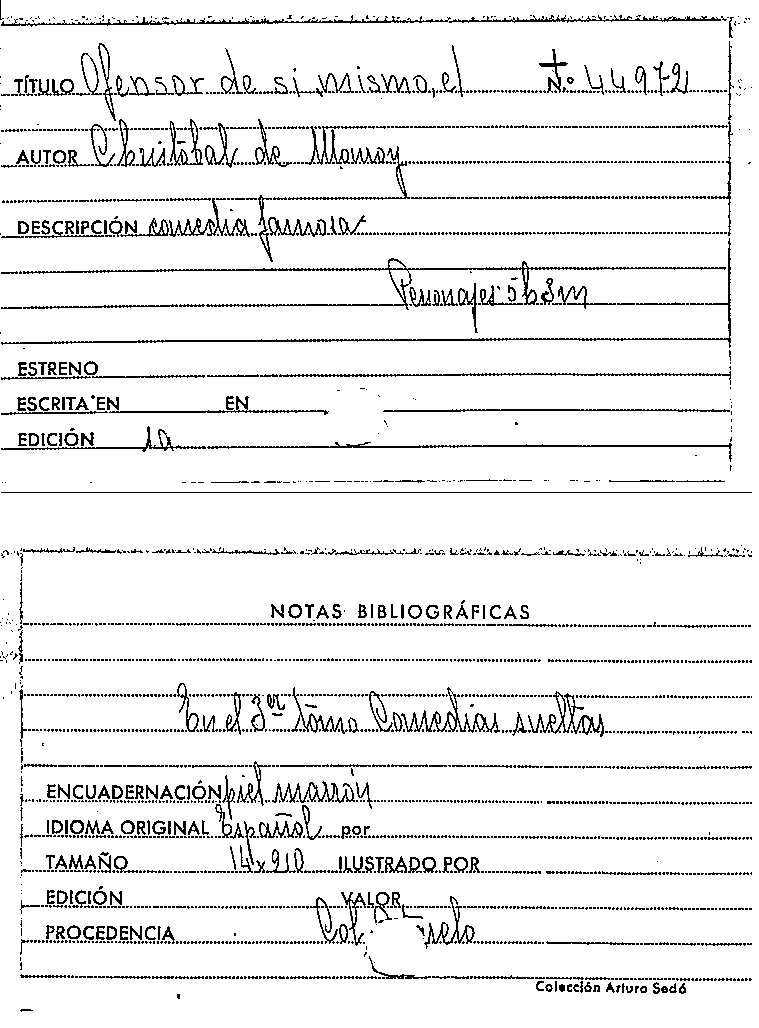 TÍTULO Ofensor de si mismo, el N.º 44972
AUTOR Christobal de Monroy
DESCRIPCIÓN comedia famosa
Personajes 5h 3m
ESTRENO
ESCRITA EN EN
EDICIÓN 1a
NOTAS BIBLIOGRÁFICAS
En el 3er tomo Comedias sueltas
ENCUADERNACIÓN piel marrón
IDIOMA ORIGINAL Español por
TAMAÑO ILUSTRADO POR
EDICIÓN VALOR
PROCEDENCIA
Colección Arturo Sedó